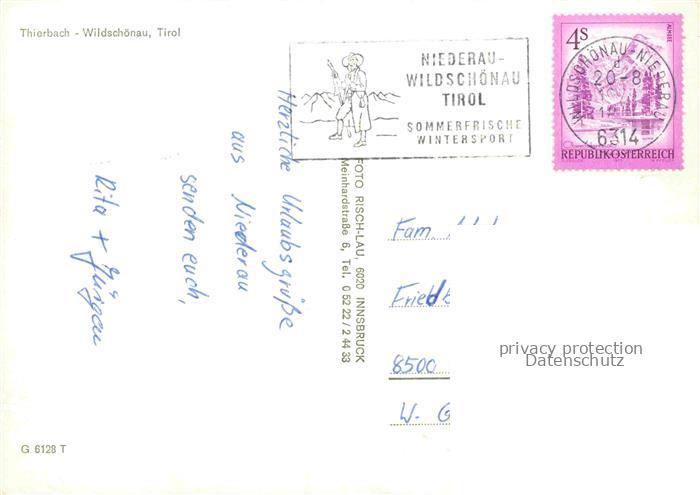 Thierbach - Wildschönau, Tirol
NIEDERAU-
WILDSCHÖNAU
TIROL
SOMMERFRISCHE
WINTERSPORT
4S
ALMSEE
WILDSCHÖNAU-NIEDERAU
20-8
6314
REPUBLIK ÖSTERREICH
Herzliche Urlaubsgrüße
aus Niederau
senden euch,
Rita + Jürgen
FOTO RISCH-LAU, 6020 INNSBRUCK
Meinhardstraße 6, Tel. 0 52 22 / 2 44 33
Fam.
Fried
8500
W-G
privacy protection
Datenschutz
G 6128 T